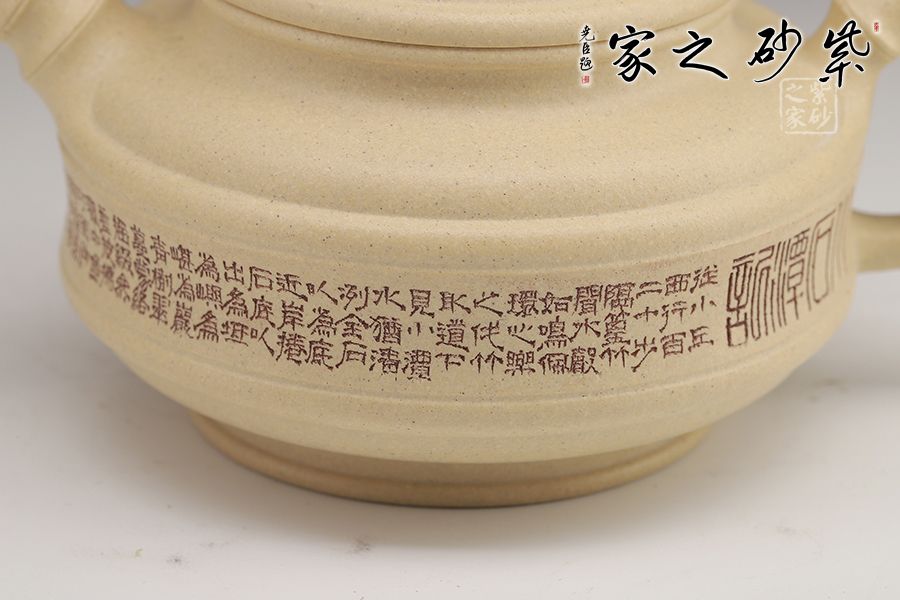 紫砂之家
堯臣題
紫砂
之家
石潭記
從小丘
西行百
二十步
隔篁竹
聞水聲
如鳴佩
環心樂
之伐竹
取道下
見小潭
水猶清
冽全石
以為底
近岸捲
石底以
出為坻
為嶼為
嵁為巖
青樹翠
蔓蒙絡
搖綴參
差披拂